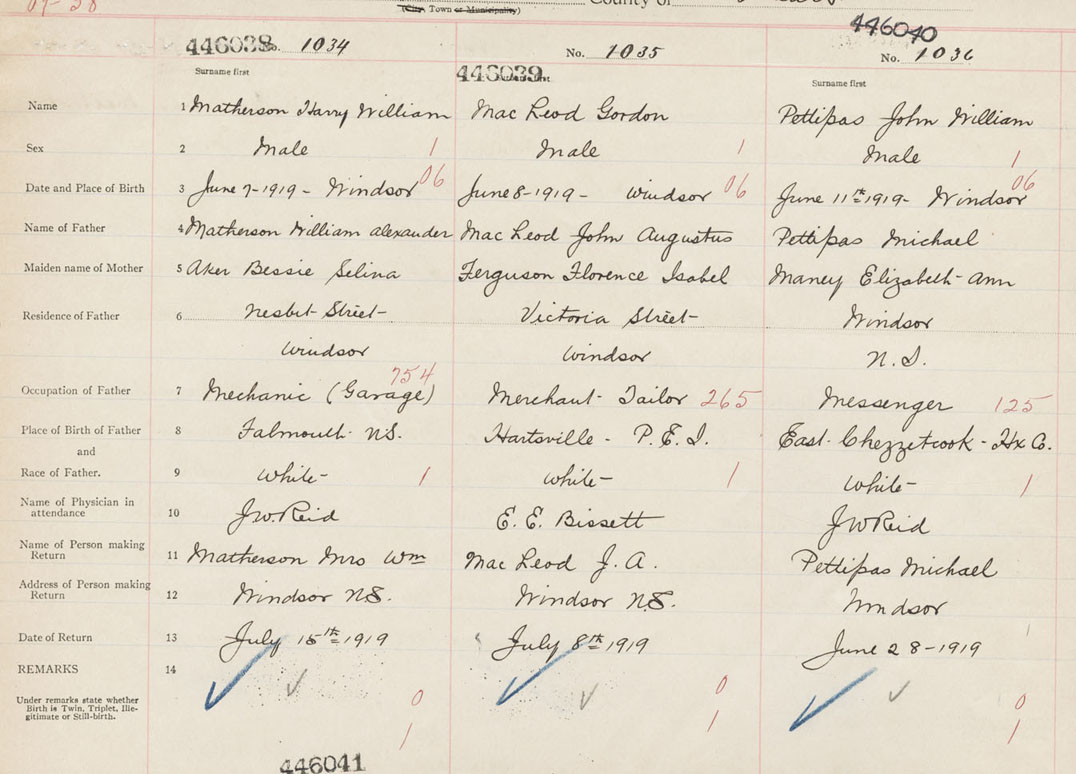 (City, Town or Municipality) County of
446038 No. 1034 446039 No. 1035 446040 No. 1036
Surname first Surname first Surname first
Name 1 Matherson Harry William Mac Leod Gordon Pettipas John William
Sex 2 Male 1 Male 1 Male 1
Date and Place of Birth 3 June 7-1919- Windsor 06 June 8-1919- Windsor 06 June 11th-1919- Windsor 06
Name of Father 4 Matherson William Alexander Mac Leod John Augustus Pettipas Michael
Maiden name of Mother 5 Aker Bessie Selina Ferguson Florence Isabel Maney Elizabeth Ann
Residence of Father 6 Nesbit Street Victoria Street Windsor
Windsor Windsor N.S.
Occupation of Father 7 Mechanic (Garage) 754 Merchant Tailor 265 Messenger 125
Place of Birth of Father 8 Falmouth NS. Hartsville - P.E.I. East Chezzetcook - Hx Co.
and
Race of Father. 9 White- 1 White- 1 White- 1
Name of Physician in
attendance 10 J.W.Reid E. E. Bissett J W Reid
Name of Person making
Return 11 Matherson Mrs Wm Mac Leod J. A. Pettipas Michael
Address of Person making
Return 12 Windsor N.S. Windsor N.S. Windsor
Date of Return 13 July 15th 1919 July 8th 1919 June 28-1919
REMARKS 14
Under remarks state whether
Birth is Twin, Triplet, Ille-
gitimate or Still-birth.
0 0 0
1 1 1
446041